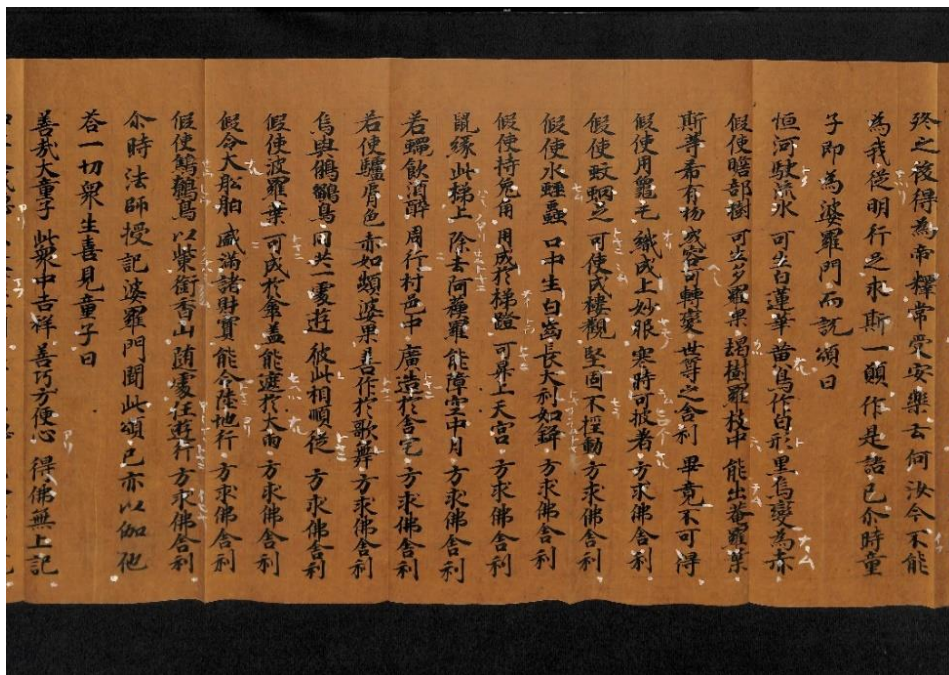 終之後得為帝釋常受安樂云何汝今不能
為我從明行足求斯一願作是語已尒時童
子即為婆羅門而說頌曰
恒河駛流水 可生白蓮華 黃鳥作白形 黒烏變為赤
假使瞻部樹 可生多羅果 朅樹羅枝中 能出菴羅葉
斯等希有物 或容可轉變 世尊之舍利 畢竟不可得
假使用龜毛 織成上妙服 寒時可披著 方求佛舍利
假使蚊蚋足 可使成樓觀 堅固不搖動 方求佛舍利
假使水蛭蟲 口中生白齒 長大利如鋒 方求佛舍利
假使持兔角 用成於梯蹬 可昇上天宮 方求佛舍利
鼠緣此梯上 除去阿蘓羅 能障空中月 方求佛舍利
若蠅飲酒醉 周行村邑中 廣造於舍宅 方求佛舍利
若使驢脣色 亦如頻婆果 善作於歌舞 方求佛舍利
烏與鵂鶹鳥 同共一處遊 彼此相順從 方求佛舍利
假使波羅葉 可成於傘盖 能遮於大雨 方求佛舍利
假令大舩舶 盛滿諸財寶 能令陸地行 方求佛舍利
假使鷦鷯鳥 以𭉨銜香山 随處任遊行 方求佛舍利
尒時法師授記婆羅門聞此頌已亦以伽他
荅一切衆生喜見童子曰
善哉大童子 此衆中吉祥 善巧方便心 得佛無上記